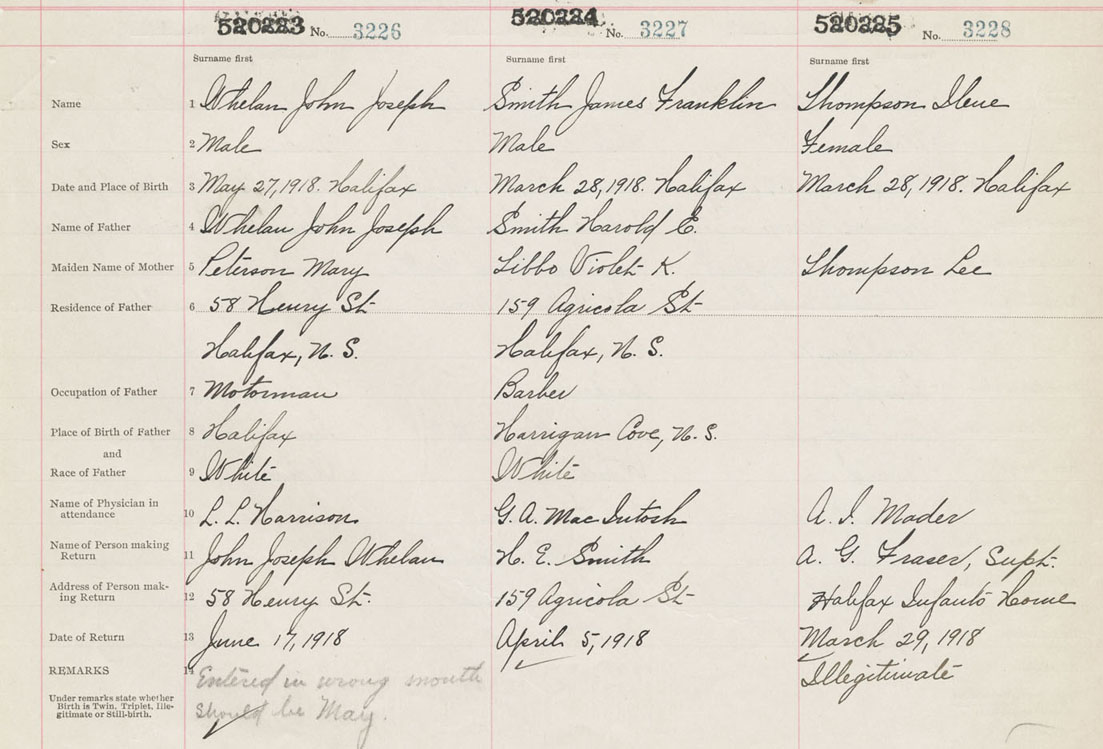 520223 No. 3226 520224 No. 3227 520225 No. 3228
Surname first Surname first Surname first
Name 1 Whelan John Joseph Smith James Franklin Thompson Ilene
Sex 2 Male Male Female
Date and Place of Birth 3 May 27, 1918. Halifax March 28, 1918. Halifax March 28, 1918. Halifax
Name of Father 4 Whelan John Joseph Smith Harold E.
Maiden Name of Mother 5 Peterson Mary Libbo Violet K. Thompson Lee
Residence of Father 6 58 Henry St 159 Agricola St
Halifax, N. S. Halifax, N. S.
Occupation of Father 7 Motorman Barber
Place of Birth of Father 8 Halifax Harrigan Cove, N. S.
and
Race of Father 9 White White
Name of Physician in
attendance 10 L. L. Harrison G. A. Mac Intosh A. I. Mader
Name of Person making
Return 11 John Joseph Whelan H. E. Smith A. G. Fraser, Supt.
Address of Person mak-
ing Return 12 58 Henry St. 159 Agricola St Halifax Infants Home
Date of Return 13 June 17, 1918 April 5, 1918 March 29, 1918
REMARKS 14 Entered in wrong month Illegitimate
Under remarks state whether
Birth is Twin, Triplet, Ille-
gitimate or Still-birth. should be May.